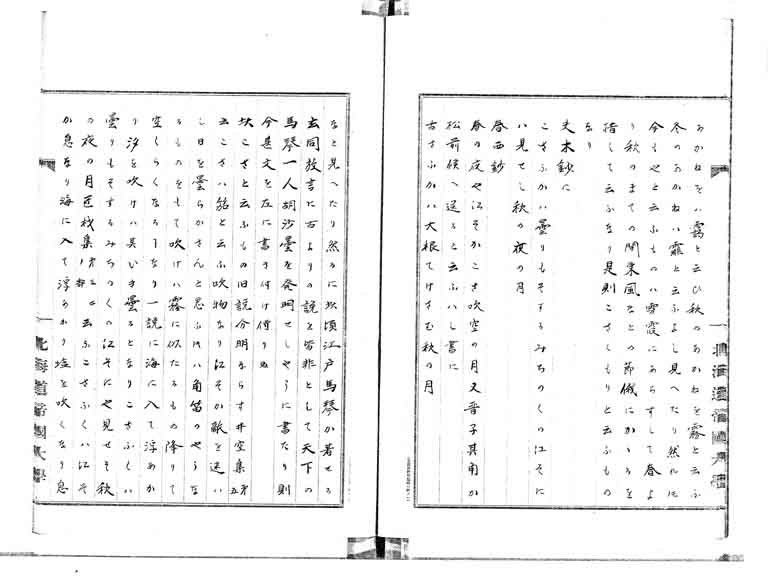 あかねをハ靄と云ひ秋のあかねを霧と云ふ
冬のあかねハ霾と云ふよし見へたり然ルに
今もやと云ふものハ雪霞にあらすして春よ
り秋のまての間東風なとの節俄にかゝるを
指して云ふなり是則こさくもりと云ふもの
なり
夫木鈔に
こさふかハ曇りもそするみちのくの江そに
ハ見せし秋の夜の月
春西鈔
春の夜や江そかこさ吹空の月又晋子其角か
松前候へ送ると云ふハし書に
古さふかハ大根てけさむ秋の月
なと見へたり然るに此頃江戸馬琴か著せる
玄同放言に古よりの説を皆非として天下の
馬琴一人胡沙曇を発明せしやうに書たり則
今其文を左に書き付け侍りぬ
此こさと云ふもの旧説分明ならす井空集五ヲ
云こさハ笳と云ふ吹物なり江そか敵を迷ハ
し日を曇らかさんと思ふ時ハ角笛のやうな
るものをもて吹けハ霧に似たるもの降りて
空しらくなる一なり一説に海に入て浮あか
り汐を吹けハ其いき曇るとなりこさふしハ
曇りもそするみちのくの江そにや見せそ秋
の夜の月匠材集云ふこさふくハ江そ
か息なり海に入て浮あかり塩を吹くなり息
北海道帝国大学
北海道帝国大学